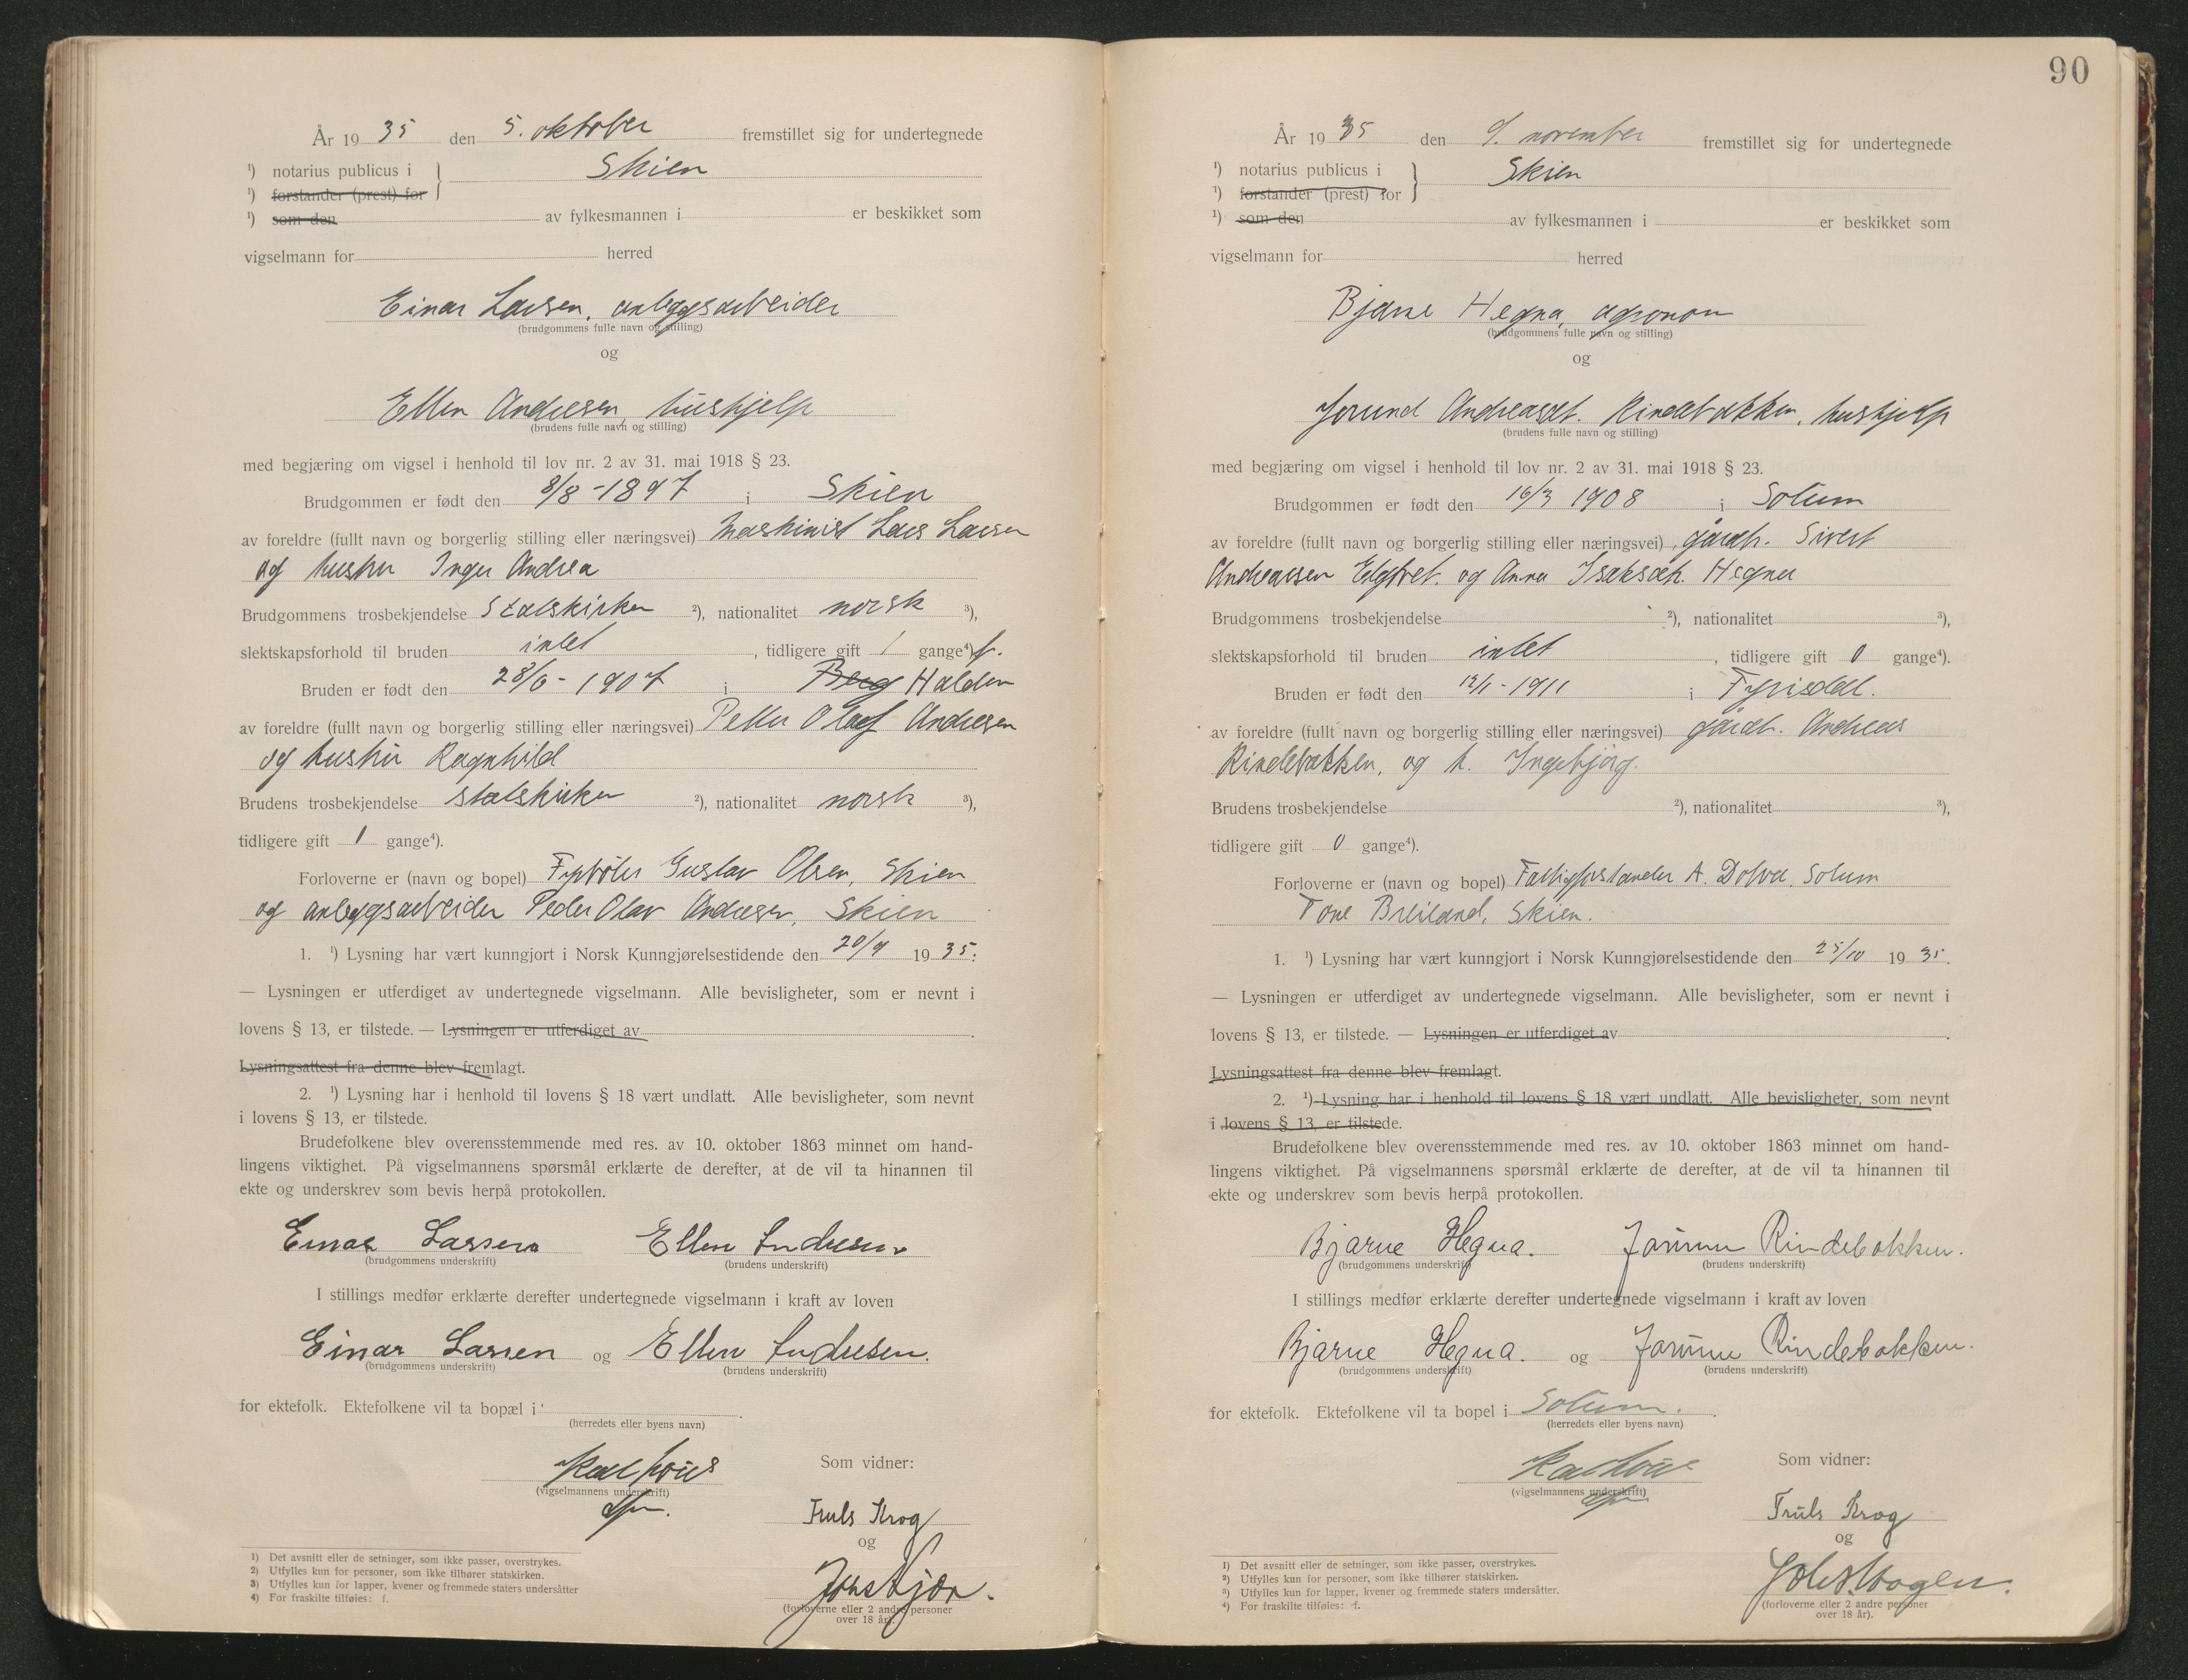 År 19 35 den 5. oktober fremstillet sig for undertegnede
¹) notarius publicus i } Skien
¹) forstander (prest) for
¹) som den av fylkesmannen i er beskikket som
vigselmann for herred
Einar Larsen, anleggsarbeider
(brudgommens fulle navn og stilling)
og
Ellen Andresen, hushjelp
(brudens fulle navn og stilling)
med begjæring om vigsel i henhold til lov nr. 2 av 31. mai 1918 § 23.
Brudgommen er født den 8/8 - 1897 i Skien
av foreldre (fullt navn og borgerlig stilling eller næringsvei) Maskinist Lars Larsen
og hustru Inger Andrea
Brudgommens trosbekjendelse Statskirken ²), nationalitet norsk ³),
slektskapsforhold til bruden intet , tidligere gift 1 gange⁴) f.
Bruden er født den 28/6 - 1907 i Berg Halden
av foreldre (fullt navn og borgerlig stilling eller næringsvei) Petter Olaf Andresen
og hustru Ragnhild
Brudens trosbekjendelse statskirken ²), nationalitet norsk ³),
tidligere gift 1 gange⁴).
Forloverne er (navn og bopel) Fyrbøter Gustav Olsen, Skien
og anleggsarbeider Peder Olav Andresen, Skien
1. ¹) Lysning har vært kunngjort i Norsk Kunngjørelsestidende den 20/9 19 35.
— Lysningen er utferdiget av undertegnede vigselmann. Alle bevisligheter, som er nevnt i
lovens § 13, er tilstede. — Lysningen er utferdiget av .
Lysningsattest fra denne blev fremlagt.
2. ¹) Lysning har i henhold til lovens § 18 vært undlatt. Alle bevisligheter, som nevnt
i lovens § 13, er tilstede.
Brudefolkene blev overensstemmende med res. av 10. oktober 1863 minnet om hand-
lingens viktighet. På vigselmannens spørsmål erklærte de derefter, at de vil ta hinannen til
ekte og underskrev som bevis herpå protokollen.
Einar Larsen Ellen Andresen
(brudgommens underskrift) (brudens underskrift)
I stillings medfør erklærte derefter undertegnede vigselmann i kraft av loven
Einar Larsen og Ellen Andresen.
(brudgommens underskrift) (brudens underskrift)
for ektefolk. Ektefolkene vil ta bopæl i .
(herredets eller byens navn)
(vigselmannens underskrift)
Som vidner:
Truls Krog
og
(forloverne eller 2 andre personer
over 18 år).
1) Det avsnitt eller de setninger, som ikke passer, overstrykes.
2) Utfylles kun for personer, som ikke tilhører statskirken.
3) Utfylles kun for lapper, kvener og fremmede staters undersåtter
4) For fraskilte tilføies: f.
90
År 19 35 den 9. november fremstillet sig for undertegnede
¹) notarius publicus i } Skien
¹) forstander (prest) for
¹) som den av fylkesmannen i er beskikket som
vigselmann for herred
Bjarne Hegna, agronom
(brudgommens fulle navn og stilling)
og
Jorund Andreasdt. Rindebakken, hushjelp
(brudens fulle navn og stilling)
med begjæring om vigsel i henhold til lov nr. 2 av 31. mai 1918 § 23.
Brudgommen er født den 16/3 1908 i Solum
av foreldre (fullt navn og borgerlig stilling eller næringsvei) gårdb. Sivert
Andreassen og Anna Isaksdt. Hegna
Brudgommens trosbekjendelse ²), nationalitet ³),
slektskapsforhold til bruden intet , tidligere gift 0 gange⁴).
Bruden er født den 12/1 - 1911 i Fyrisdal.
av foreldre (fullt navn og borgerlig stilling eller næringsvei) gårdb. Andreas
Rindebakken, og h. Ingebjørg.
Brudens trosbekjendelse ²), nationalitet ³),
tidligere gift 0 gange⁴).
Forloverne er (navn og bopel) Fattigforstander A. Dolva, Solum
Tone Breiland, Skien.
1. ¹) Lysning har vært kunngjort i Norsk Kunngjørelsestidende den 25/10 19 35.
— Lysningen er utferdiget av undertegnede vigselmann. Alle bevisligheter, som er nevnt i
lovens § 13, er tilstede. — Lysningen er utferdiget av .
Lysningsattest fra denne blev fremlagt.
2. ¹) Lysning har i henhold til lovens § 18 vært undlatt. Alle bevisligheter, som nevnt
i lovens § 13, er tilstede.
Brudefolkene blev overensstemmende med res. av 10. oktober 1863 minnet om hand-
lingens viktighet. På vigselmannens spørsmål erklærte de derefter, at de vil ta hinannen til
ekte og underskrev som bevis herpå protokollen.
Bjarne Hegna. Jorunn Rindebakken.
(brudgommens underskrift) (brudens underskrift)
I stillings medfør erklærte derefter undertegnede vigselmann i kraft av loven
Bjarne Hegna. og Jorunn Rindebakken.
(brudgommens underskrift) (brudens underskrift)
for ektefolk. Ektefolkene vil ta bopel i Solum.
(herredets eller byens navn)
(vigselmannens underskrift)
Som vidner:
Truls Krog
og
(forloverne eller 2 andre personer
over 18 år).
1) Det avsnitt eller de setninger, som ikke passer, overstrykes.
2) Utfylles kun for personer, som ikke tilhører statskirken.
3) Utfylles kun for lapper, kvener og fremmede staters undersåtter.
4) For fraskilte tilføies: f.